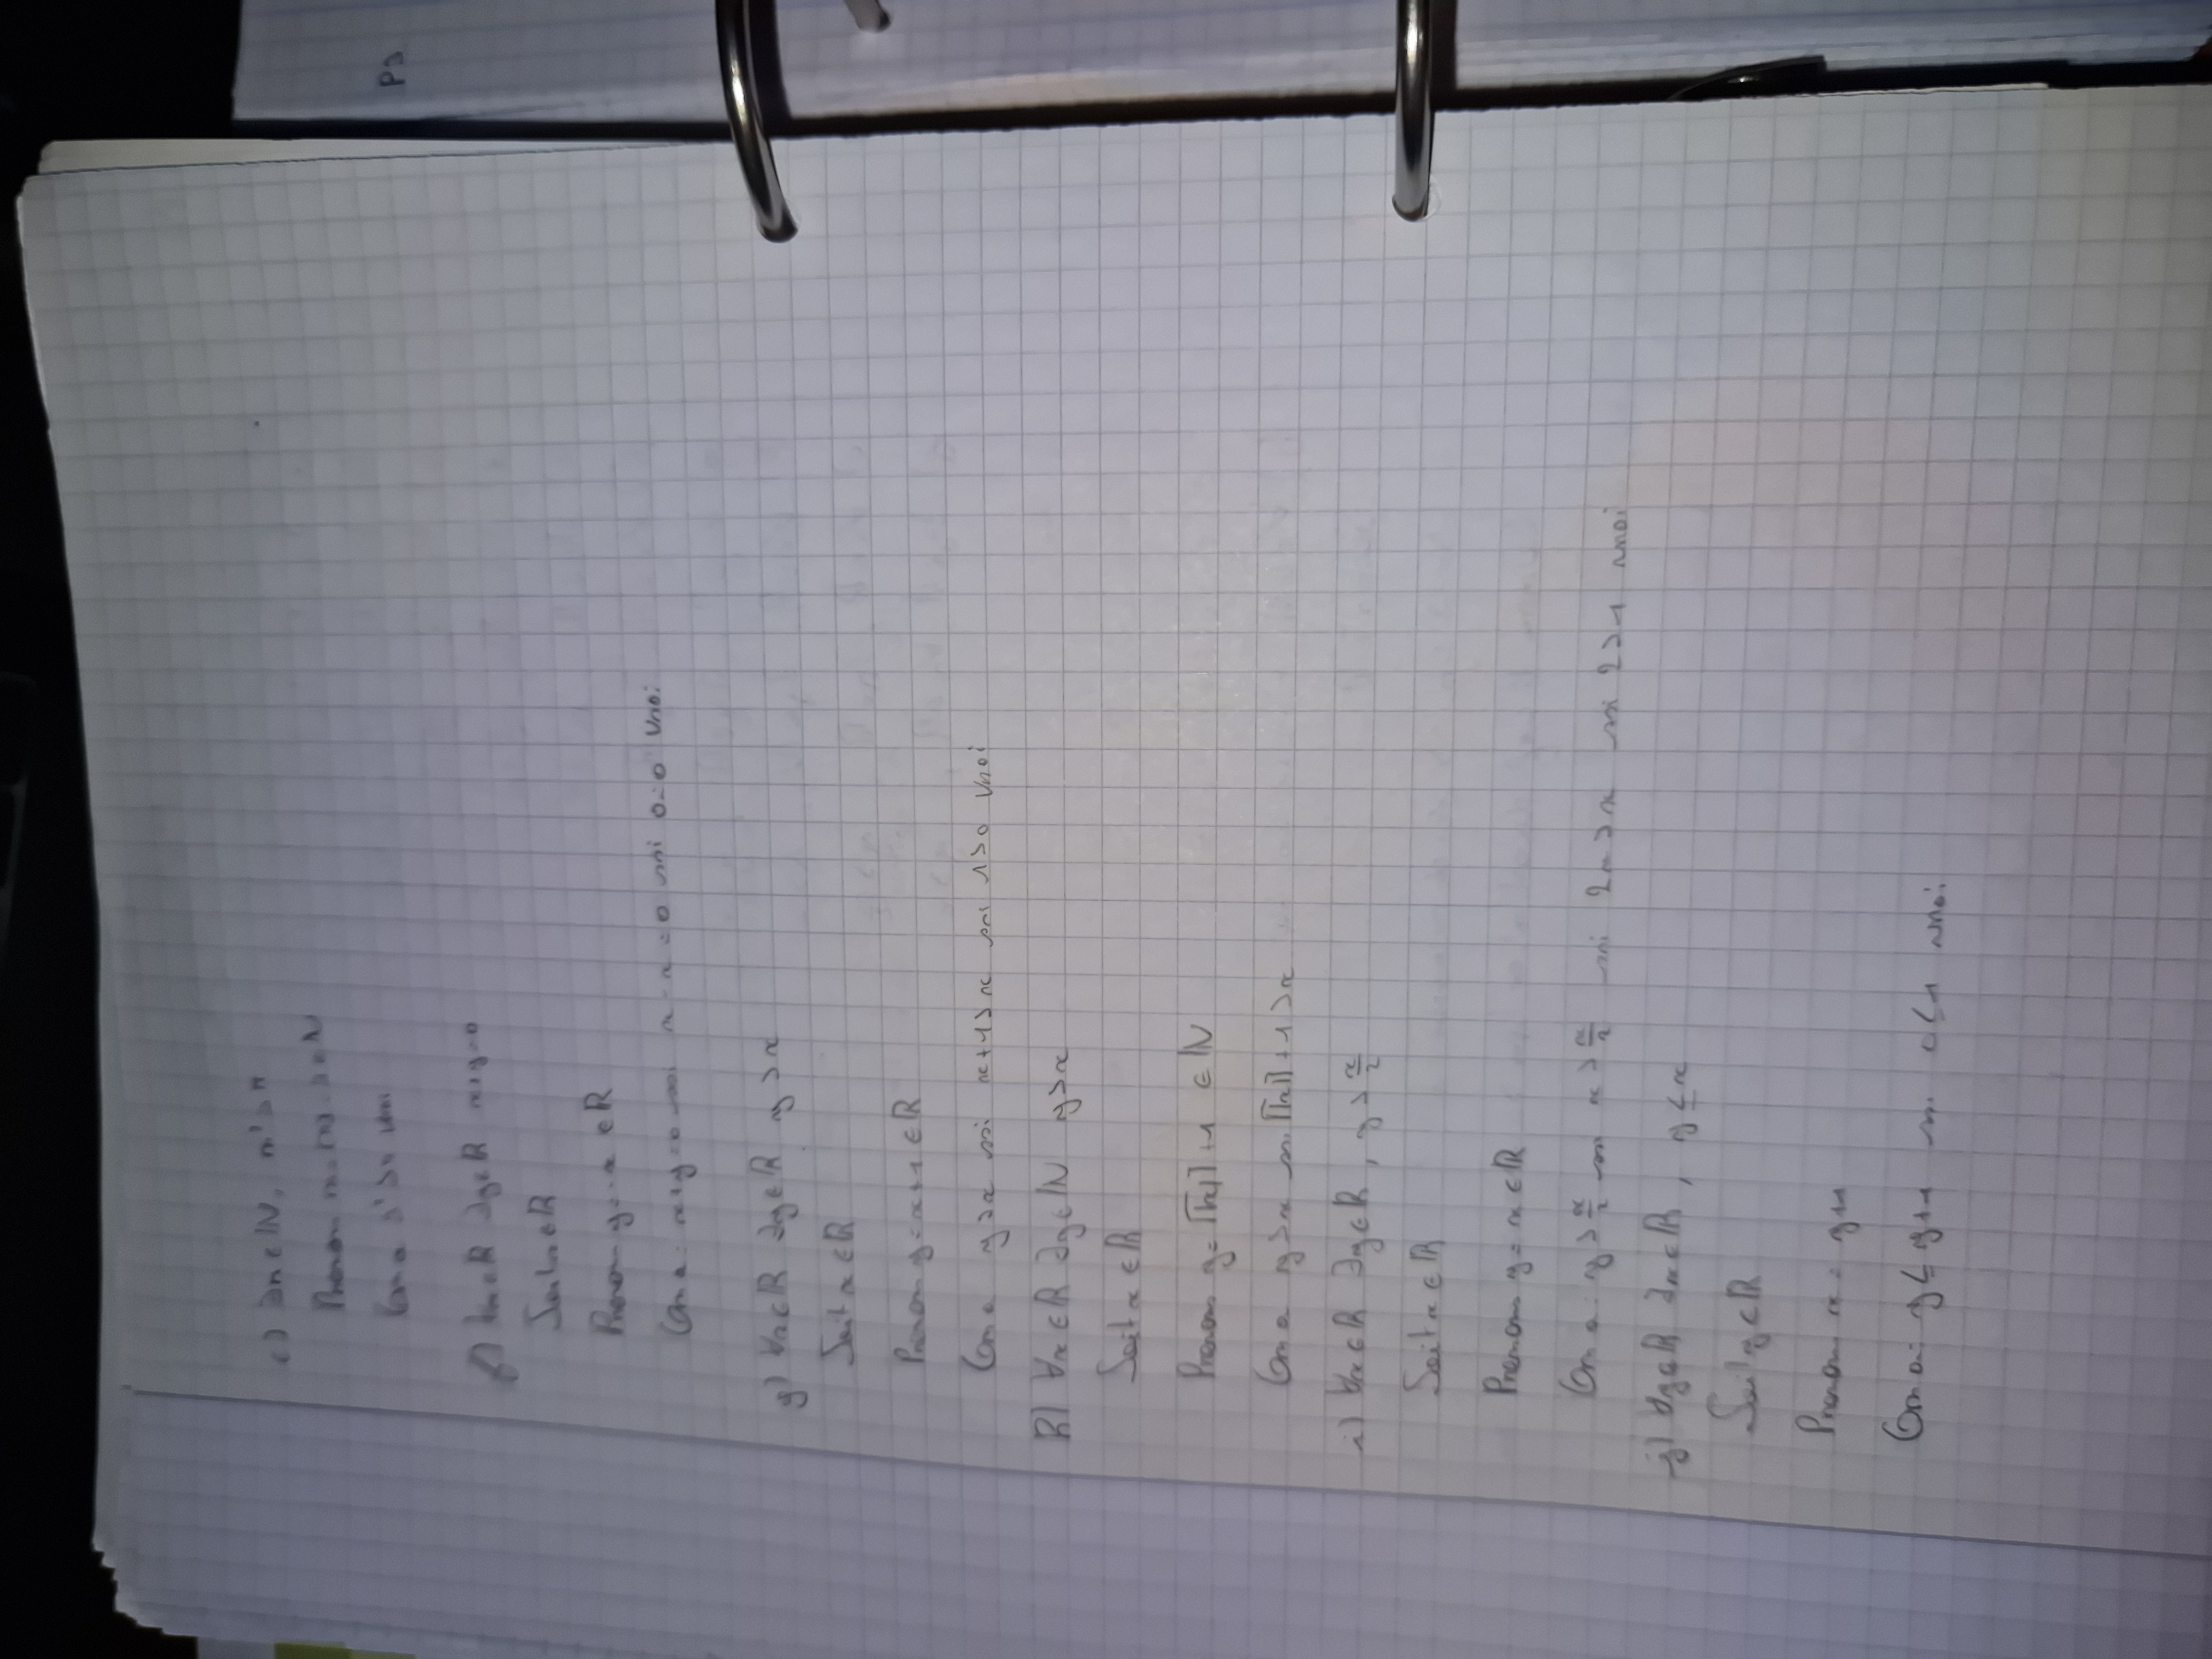 ∃n∈ℕ, n² > n
Prenons ∈ℕ
On a vrai
f) ∀x∈ℝ ∃y∈ℝ x+y=0
Soit x∈ℝ
Prenons y=-x ∈ℝ
On a: x+y=0 ssi x-x=0 ssi 0=0 Vrai
g) ∀x∈ℝ ∃y∈ℝ y>x
Soit x∈ℝ
Prenons y=x+1 ∈ℝ
On a y>x ssi x+1>x ssi 1>0 Vrai
h) ∀x∈ℝ ∃y∈ℕ y>x
Soit x∈ℝ
Prenons y=⌈|x|⌉+1 ∈ℕ
On a y>x ssi ⌈|x|⌉+1>x
i) ∀x∈ℝ ∃y∈ℝ, y>x/2
Soit x∈ℝ
Prenons y=x∈ℝ
On a: y>x/2 ssi x>x/2 ssi 2x>x ssi 2>1 vrai
j) ∀y∈ℝ ∃x∈ℝ, y≤x
Soit y∈ℝ
Prenons x=y+1
On a: y≤y+1 ssi 0≤1 vrai
P3